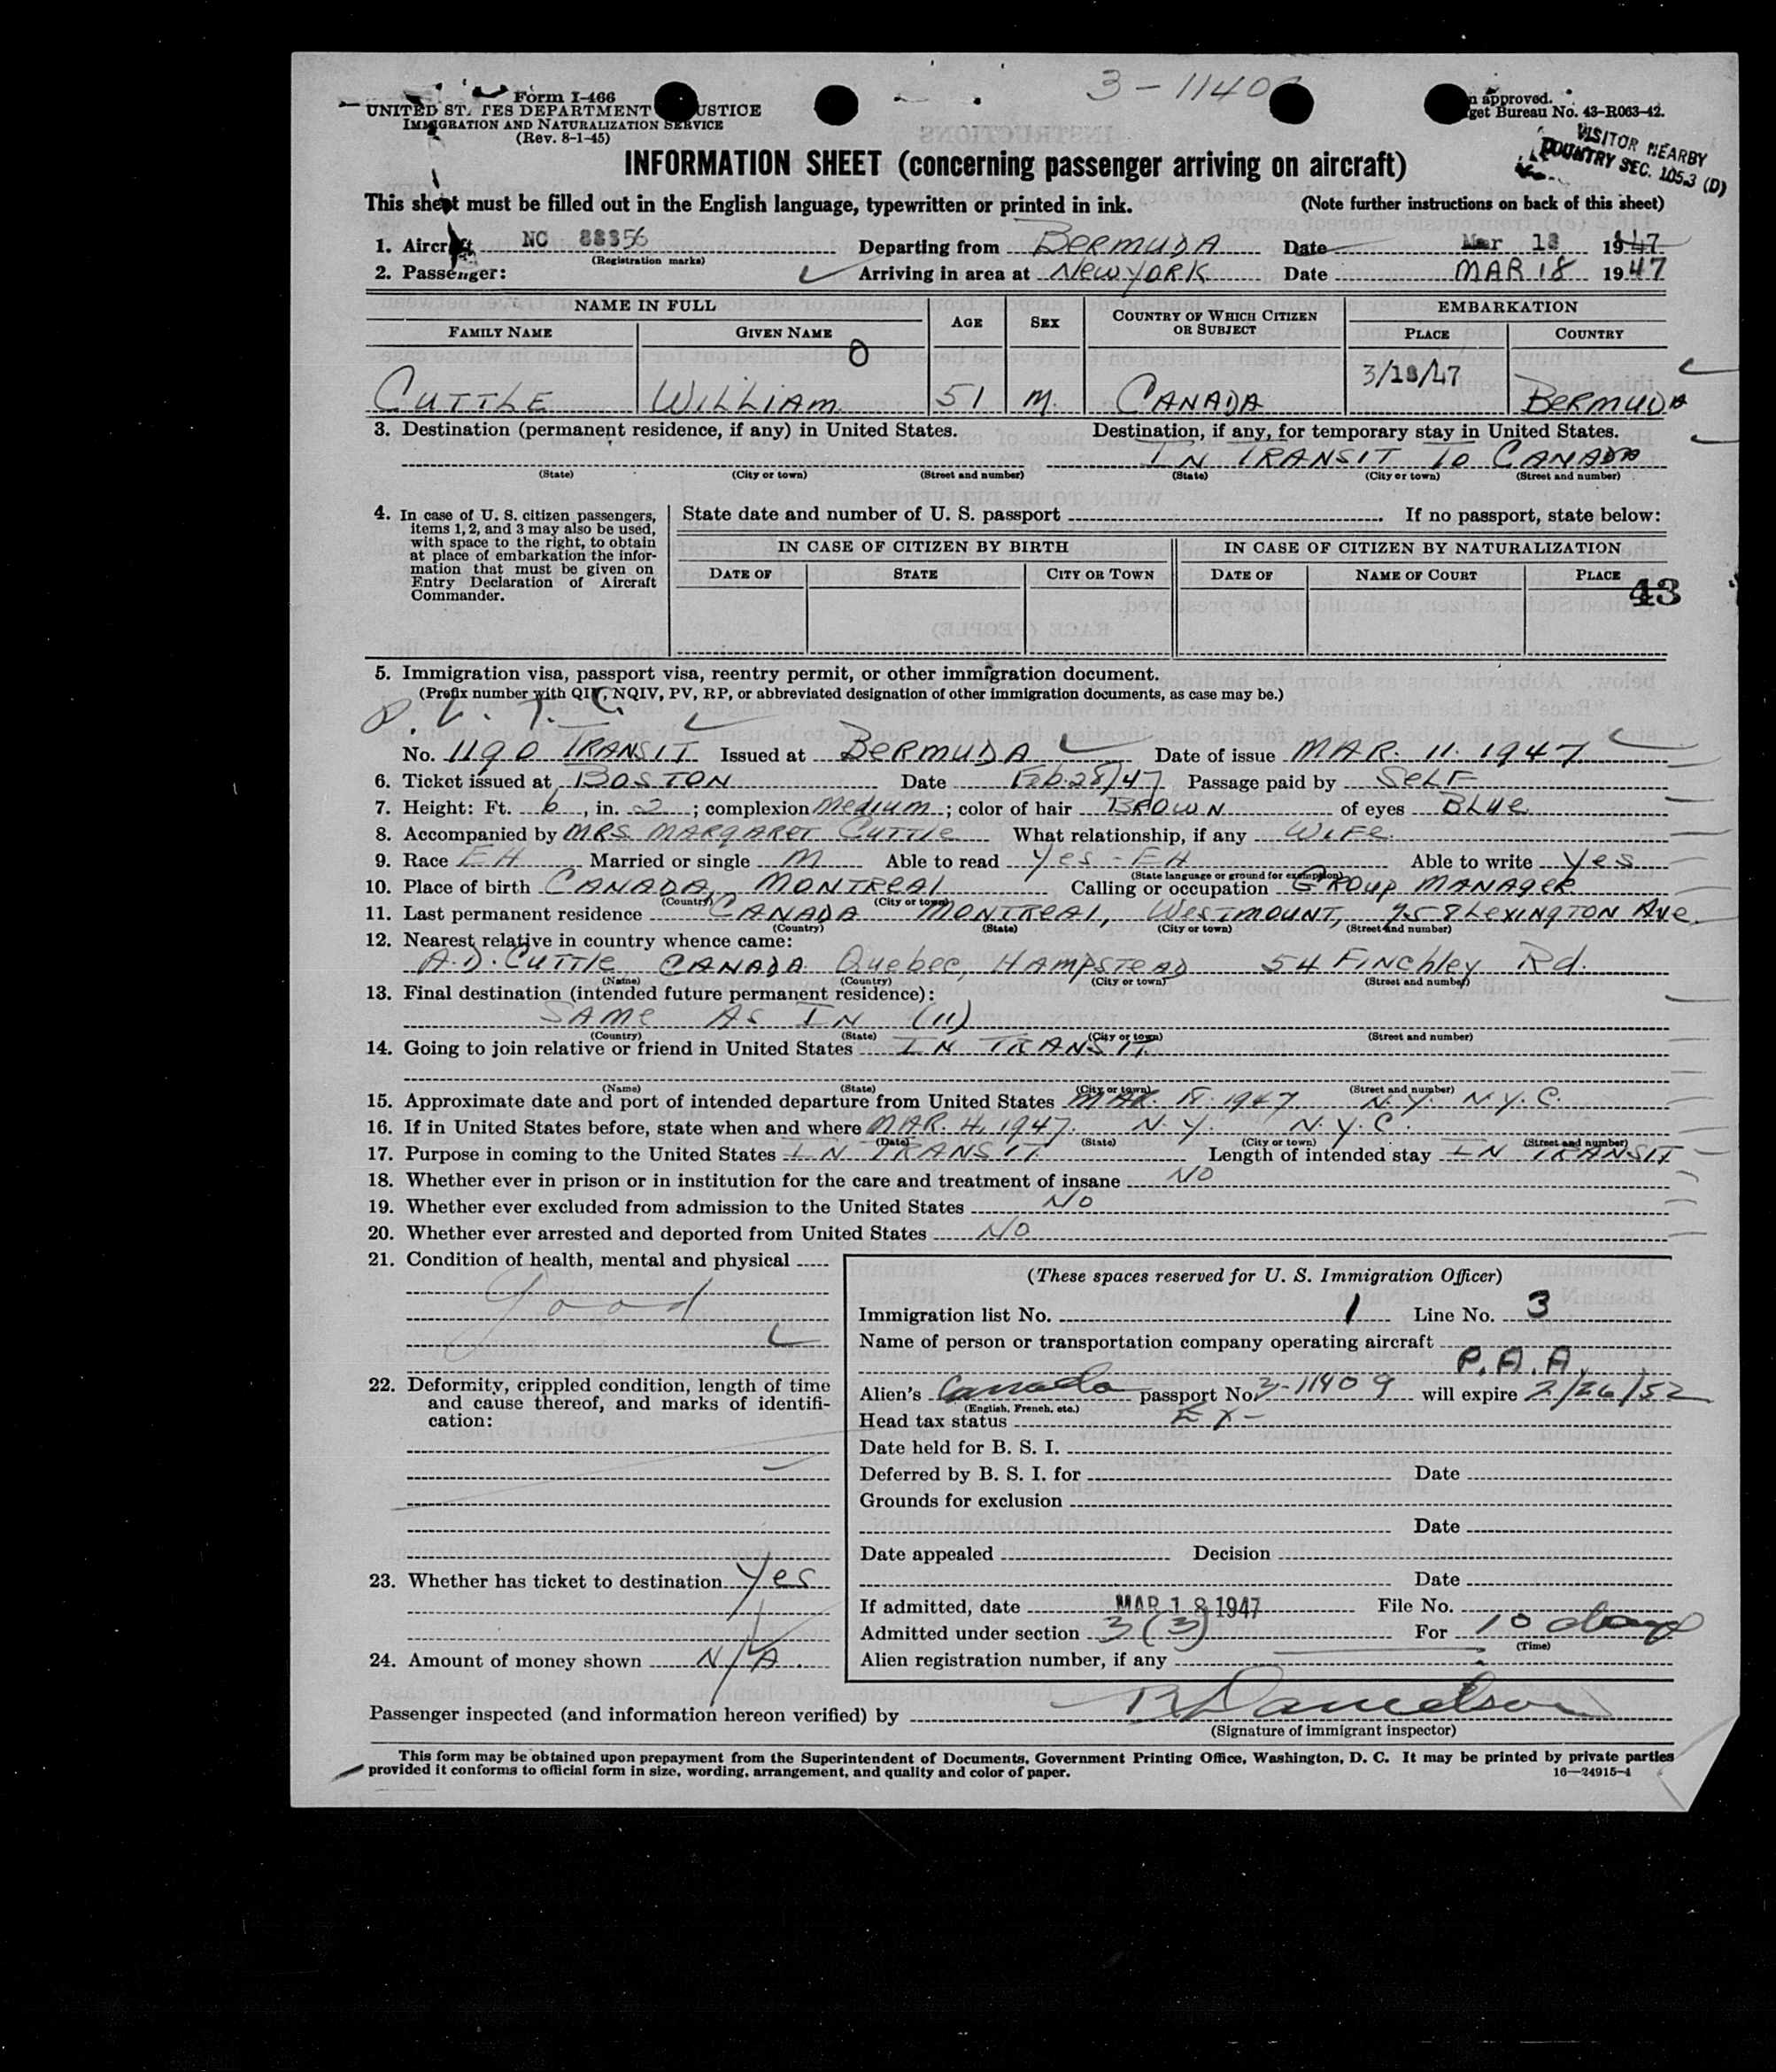 3-1140
Form I-466
UNITED ST TES DEPARTMENT USTICE
IMMIGRATION AND NATURALIZATION SERVICE
(Rev. 8-1-45)
n approved.
get Bureau No. 43-R063-42.
VISITOR NEARBY
COUNTRY SEC. 105.3 (D)
INFORMATION SHEET (concerning passenger arriving on aircraft)
This sheet must be filled out in the English language, typewritten or printed in ink. (Note further instructions on back of this sheet)
1. Aircraft NC 88356 Departing from BERMUDA Date Mar 18 1947
(Registration marks)
2. Passenger: Arriving in area at NEW YORK Date MAR 18 1947
NAME IN FULL AGE SEX COUNTRY OF WHICH CITIZEN OR SUBJECT EMBARKATION
FAMILY NAME GIVEN NAME PLACE COUNTRY
0
3/18/47
CUTTLE WILLIAM 51 M. CANADA BERMUDA
3. Destination (permanent residence, if any) in United States. Destination, if any, for temporary stay in United States.
IN TRANSIT TO CANADA
(State) (City or town) (Street and number) (State) (City or town) (Street and number)
4. In case of U. S. citizen passengers, items 1, 2, and 3 may also be used, with space to the right, to obtain at place of embarkation the information that must be given on Entry Declaration of Aircraft Commander.
State date and number of U. S. passport . If no passport, state below:
IN CASE OF CITIZEN BY BIRTH IN CASE OF CITIZEN BY NATURALIZATION
DATE OF STATE CITY OR TOWN DATE OF NAME OF COURT PLACE
43
5. Immigration visa, passport visa, reentry permit, or other immigration document.
(Prefix number with QIV, NQIV, PV, RP, or abbreviated designation of other immigration documents, as case may be.)
P. V. T. C.
No. 1190 TRANSIT Issued at BERMUDA Date of issue MAR. 11. 1947
6. Ticket issued at BOSTON Date Feb. 28/47 Passage paid by SELF
7. Height: Ft. 6, in. 2; complexion Medium; color of hair BROWN of eyes BLUE
8. Accompanied by MRS. MARGARET CUTTLE What relationship, if any WIFE.
9. Race EH Married or single M Able to read Yes - EH Able to write Yes
(State language or ground for exemption)
10. Place of birth CANADA, MONTREAL Calling or occupation GROUP MANAGER
(Country) (City or town)
11. Last permanent residence CANADA MONTREAL, WESTMOUNT, 758 LEXINGTON AVE.
(Country) (State) (City or town) (Street and number)
12. Nearest relative in country whence came:
A. D. CUTTLE CANADA Quebec, HAMPSTEAD 54 FINCHLEY Rd.
(Name) (Country) (City or town) (Street and number)
13. Final destination (intended future permanent residence):
SAME AS IN (11)
(Country) (State) (City or town) (Street and number)
14. Going to join relative or friend in United States IN TRANSIT
(Name) (State) (City or town) (Street and number)
15. Approximate date and port of intended departure from United States MAR. 18. 1947 N. Y. N. Y. C.
16. If in United States before, state when and where MAR. 4, 1947. N. Y. N. Y. C.
(Date) (State) (City or town) (Street and number)
17. Purpose in coming to the United States IN TRANSIT Length of intended stay IN TRANSIT
18. Whether ever in prison or in institution for the care and treatment of insane NO
19. Whether ever excluded from admission to the United States NO
20. Whether ever arrested and deported from United States NO
21. Condition of health, mental and physical
Good
22. Deformity, crippled condition, length of time and cause thereof, and marks of identification:
23. Whether has ticket to destination Yes
24. Amount of money shown N/A.
(These spaces reserved for U. S. Immigration Officer)
Immigration list No. 1 Line No. 3
Name of person or transportation company operating aircraft
P. A. A.
Alien's Canada passport No. 3-11409 will expire 2/26/52
(English, French, etc.)
Head tax status Ex-
Date held for B. S. I.
Deferred by B. S. I. for Date
Grounds for exclusion
Date
Date appealed Decision
Date
If admitted, date MAR 18 1947 File No.
Admitted under section 3 (3) For 10 days
(Time)
Alien registration number, if any
Passenger inspected (and information hereon verified) by R Danielson
(Signature of immigrant inspector)
This form may be obtained upon prepayment from the Superintendent of Documents, Government Printing Office, Washington, D. C. It may be printed by private parties
provided it conforms to official form in size, wording, arrangement, and quality and color of paper. 16—24915-1